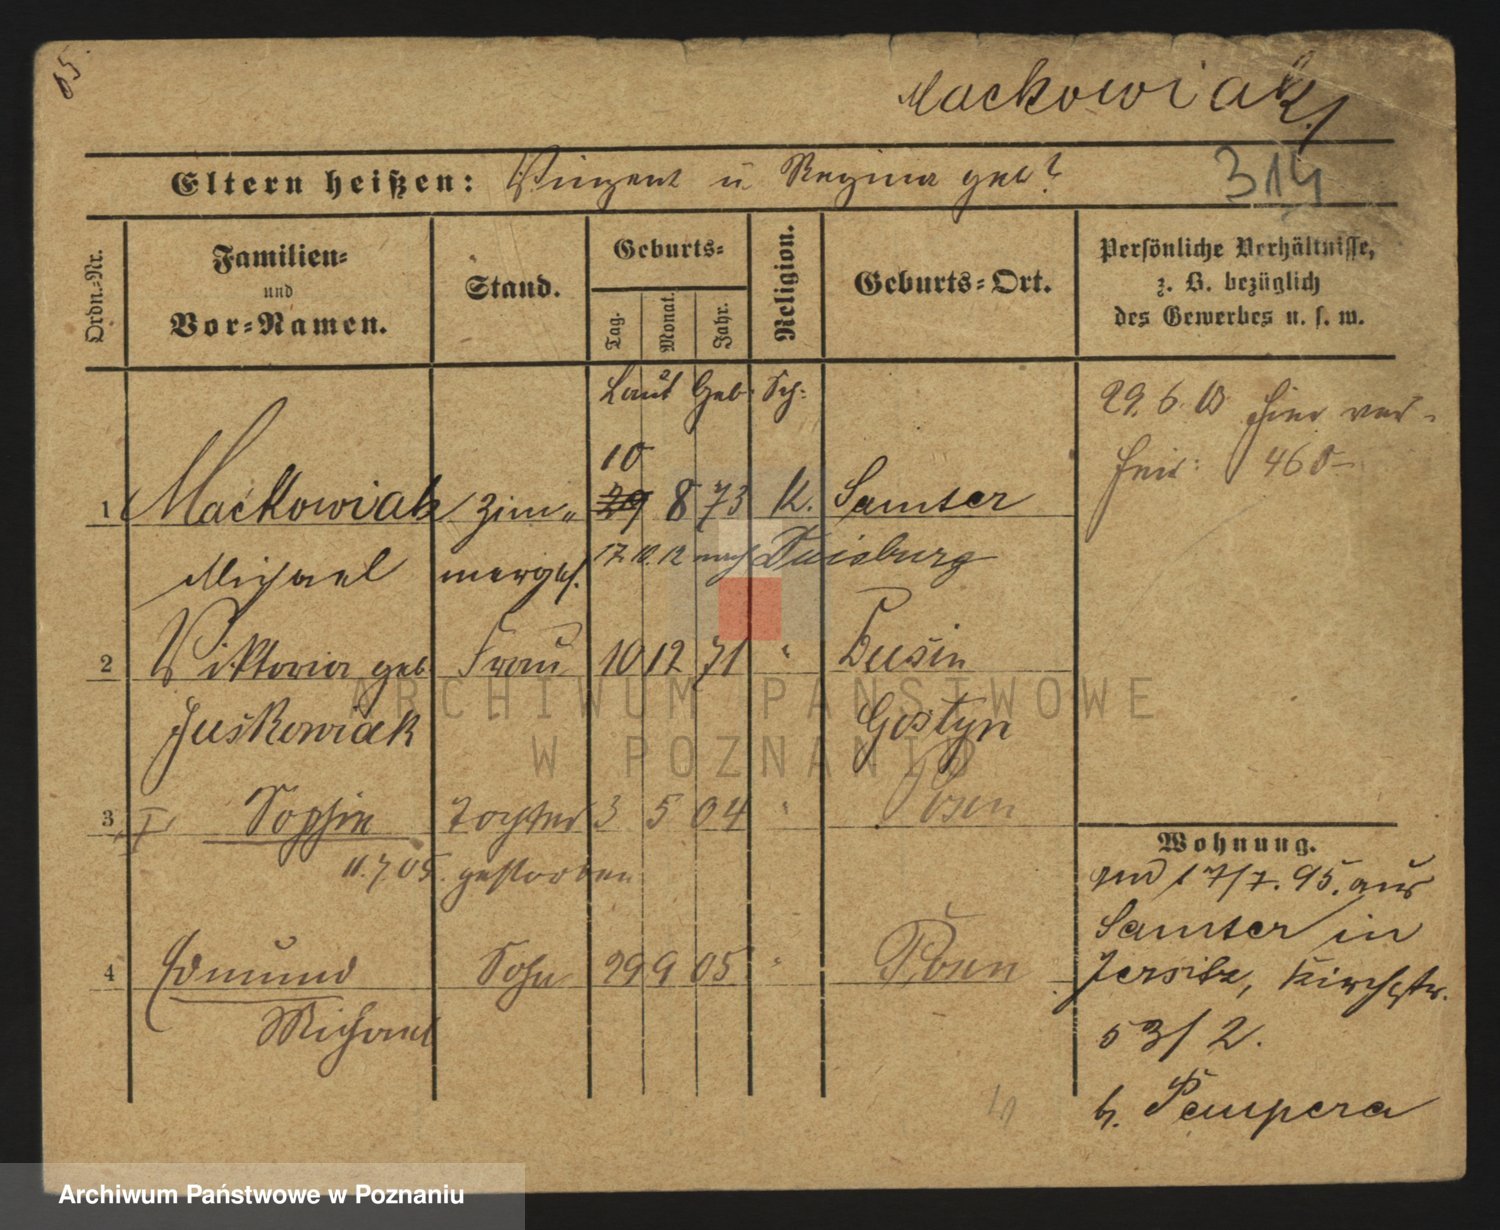 Mackowiak
Eltern heißen: Vinzent u Regina geb?
314
Ordn.-Nr.
Familien-
und
Vor-Namen.
Stand.
Geburts-
Tag.
Monat.
Jahr.
Religion.
Geburts-Ort.
Persönliche Verhältnisse,
z. B. bezüglich
des Gewerbes u. s. w.
Laut Geb. Sch:
29. 6. hier ver-
heir: 460
10
1 Mackowiak Zim- 29 8 73 K. Samter
Michael merges. 17. 10. 12 nach Duisburg
2 Viktoria geb Frau 10 12 71 " Dusin
Juskowiak Gostyn
3 Sophie Tochter 3 5 04 " Posen
11. 7 05. gestorben
4 Edmund Sohn 29 9 05 " Posen
Michael
Wohnung.
17/7. 95. aus
Samter in
Jersitz, Kirchstr.
53/2.
b. Pempera
ARCHIWUM PAŃSTWOWE
W POZNANIU
Archiwum Państwowe w Poznaniu